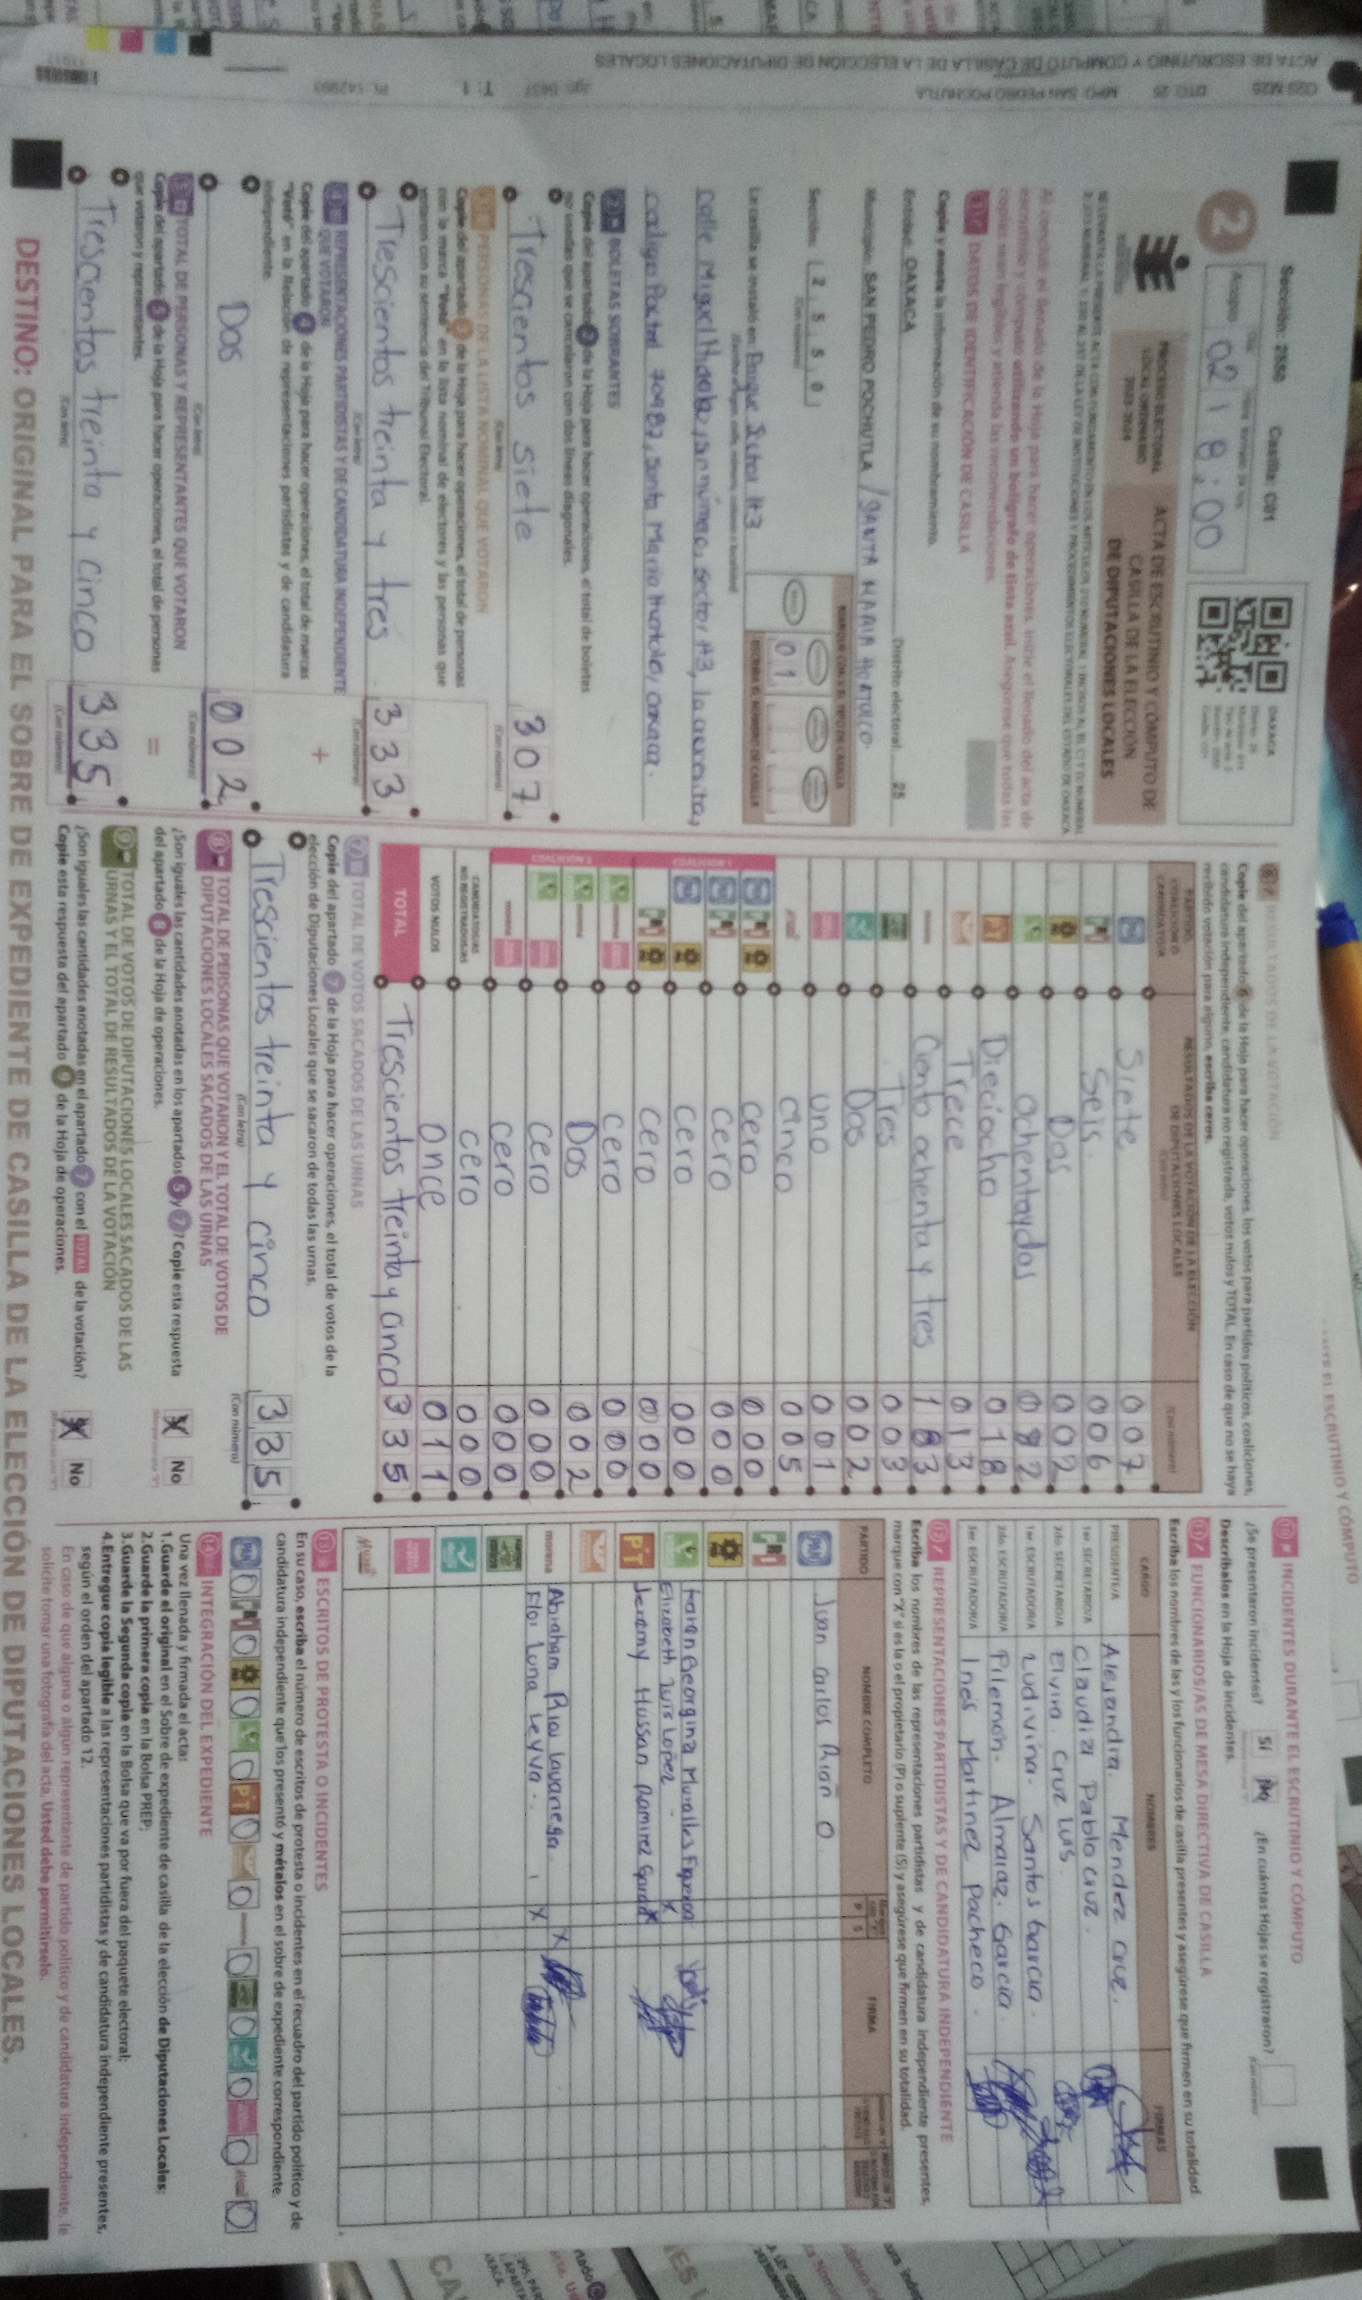 Sección: 2550 Casilla: C01
2
Acopio
02 18:00
OAXACA
PROCESO ELECTORAL
LOCAL ORDINARIO
2023-2024
ACTA DE ESCRUTINIO Y CÓMPUTO DE
CASILLA DE LA ELECCIÓN
DE DIPUTACIONES LOCALES
Al concluir el llenado de la Hoja para hacer operaciones, inicie el llenado del acta de
escrutinio y cómputo utilizando un bolígrafo de tinta azul. Asegúrese que todas las
copias sean legibles y atienda las recomendaciones.
DATOS DE IDENTIFICACIÓN DE CASILLA
Copie y anote la información de su nombramiento.
Entidad: OAXACA Distrito electoral: 25
Municipio: SAN PEDRO POCHUTLA / SANTA MARIA HUATULCO
Sección: 2 5 5 0
(Con número)
01
ESCRIBA EL NÚMERO DE CASILLA
La casilla se instaló en:
calle Miguel Hidalgo, sin número, sector H3, la crucecita,
codigo Postal 70987, Santa Maria Huatulco, Oaxaca.
BOLETAS SOBRANTES
Copie del apartado 2 de la Hoja para hacer operaciones, el total de boletas
no usadas que se cancelaron con dos líneas diagonales.
Trescientos siete 307
(Con letra) (Con número)
PERSONAS DE LA LISTA NOMINAL QUE VOTARON
Copie del apartado 3 de la Hoja para hacer operaciones, el total de personas
con la marca "Votó" en la lista nominal de electores y las personas que
votaron con su sentencia del Tribunal Electoral.
Trescientos treinta y tres 333
(Con letra) (Con número)
REPRESENTACIONES PARTIDISTAS Y DE CANDIDATURA INDEPENDIENTE
QUE VOTARON +
Copie del apartado 4 de la Hoja para hacer operaciones, el total de marcas
"Votó" en la Relación de representaciones partidistas y de candidatura
independiente.
Dos 002
(Con letra) (Con número)
TOTAL DE PERSONAS Y REPRESENTANTES QUE VOTARON
Copie del apartado 5 de la Hoja para hacer operaciones, el total de personas =
que votaron y representantes.
Trescientos treinta y cinco 335
(Con letra) (Con número)
RESULTADOS DE LA VOTACIÓN
Copie del apartado 6 de la Hoja para hacer operaciones, los votos para partidos políticos, coaliciones,
candidatura independiente, candidatura no registrada, votos nulos y TOTAL. En caso de que no se haya
recibido votación para alguno, escriba ceros.
PARTIDO,
COALICIÓN O
CANDIDATO/A
RESULTADOS DE LA VOTACIÓN DE LA ELECCIÓN
DE DIPUTACIONES LOCALES
(Con letra) (Con número)
Siete 007
Seis. 006
Dos 002
ochenta y dos 082
Dieciocho 018
Trece 013
Ciento ochenta y tres 183
Tres 003
Dos 002
uno 001
cinco 005
cero 000
cero 000
cero 000
cero 000
cero 000
Dos 002
cero 000
cero 000
CANDIDATOS/AS
NO REGISTRADOS/AS cero 000
VOTOS NULOS once 011
TOTAL Trescientos treinta y cinco 335
TOTAL DE VOTOS SACADOS DE LAS URNAS
Copie del apartado 7 de la Hoja para hacer operaciones, el total de votos de la
elección de Diputaciones Locales que se sacaron de todas las urnas.
Trescientos treinta y cinco 335
(Con letra) (Con número)
8 TOTAL DE PERSONAS QUE VOTARON Y EL TOTAL DE VOTOS DE
DIPUTACIONES LOCALES SACADOS DE LAS URNAS
¿Son iguales las cantidades anotadas en los apartados 5 y 7? Copie esta respuesta
del apartado 8 de la Hoja de operaciones. Sí No
9 TOTAL DE VOTOS DE DIPUTACIONES LOCALES SACADOS DE LAS
URNAS Y EL TOTAL DE RESULTADOS DE LA VOTACIÓN
¿Son iguales las cantidades anotadas en el apartado 7 con el TOTAL de la votación?
Copie esta respuesta del apartado 9 de la Hoja de operaciones. Sí No
10 INCIDENTES DURANTE EL ESCRUTINIO Y CÓMPUTO
¿Se presentaron incidentes? Sí No ¿En cuántas Hojas se registraron?
Descríbalos en la Hoja de incidentes.
11 FUNCIONARIOS/AS DE MESA DIRECTIVA DE CASILLA
Escriba los nombres de las y los funcionarios de casilla presentes y asegúrese que firmen en su totalidad.
CARGO NOMBRES FIRMAS
PRESIDENTE/A Alejandra. Mendez cruz.
1er. SECRETARIO/A Claudia Pablo cruz.
2do. SECRETARIO/A Elvira. Cruz Luis.
1er. ESCRUTADOR/A Ludivina. Santos Garcia.
2do. ESCRUTADOR/A Filemon. Almaraz. Garcia.
3er. ESCRUTADOR/A Ines Martinez pacheco.
12 REPRESENTACIONES PARTIDISTAS Y DE CANDIDATURA INDEPENDIENTE
Escriba los nombres de las representaciones partidistas y de candidatura independiente presentes,
marque con "X" si es la o el propietario (P) o suplente (S) y asegúrese que firmen en su totalidad.
PARTIDO NOMBRE COMPLETO P S FIRMA
PAN Juan carlos
Karen Georgina Muralles Figueroa
Elizabeth Luis Lopez X
PT Jeremy Hussan Ramirez X
morena Abraham Rios X
Flor Luna Leyva. X
13 ESCRITOS DE PROTESTA O INCIDENTES
En su caso, escriba el número de escritos de protesta o incidentes en el recuadro del partido político y de
candidatura independiente que los presentó y métalos en el sobre de expediente correspondiente.
14 INTEGRACIÓN DEL EXPEDIENTE
Una vez llenada y firmada el acta:
1.Guarde el original en el Sobre de expediente de casilla de la elección de Diputaciones Locales;
2.Guarde la primera copia en la Bolsa PREP;
3.Guarde la Segunda copia en la Bolsa que va por fuera del paquete electoral;
4.Entregue copia legible a las representaciones partidistas y de candidatura independiente presentes,
según el orden del apartado 12.
En caso de que alguna o algún representante de partido político y de candidatura independiente, le
solicite tomar una fotografía del acta, Usted debe permitírselo.
DESTINO: ORIGINAL PARA EL SOBRE DE EXPEDIENTE DE CASILLA DE LA ELECCIÓN DE DIPUTACIONES LOCALES.
ACTA DE ESCRUTINIO Y CÓMPUTO DE CASILLA DE LA ELECCIÓN DE DIPUTACIONES LOCALES